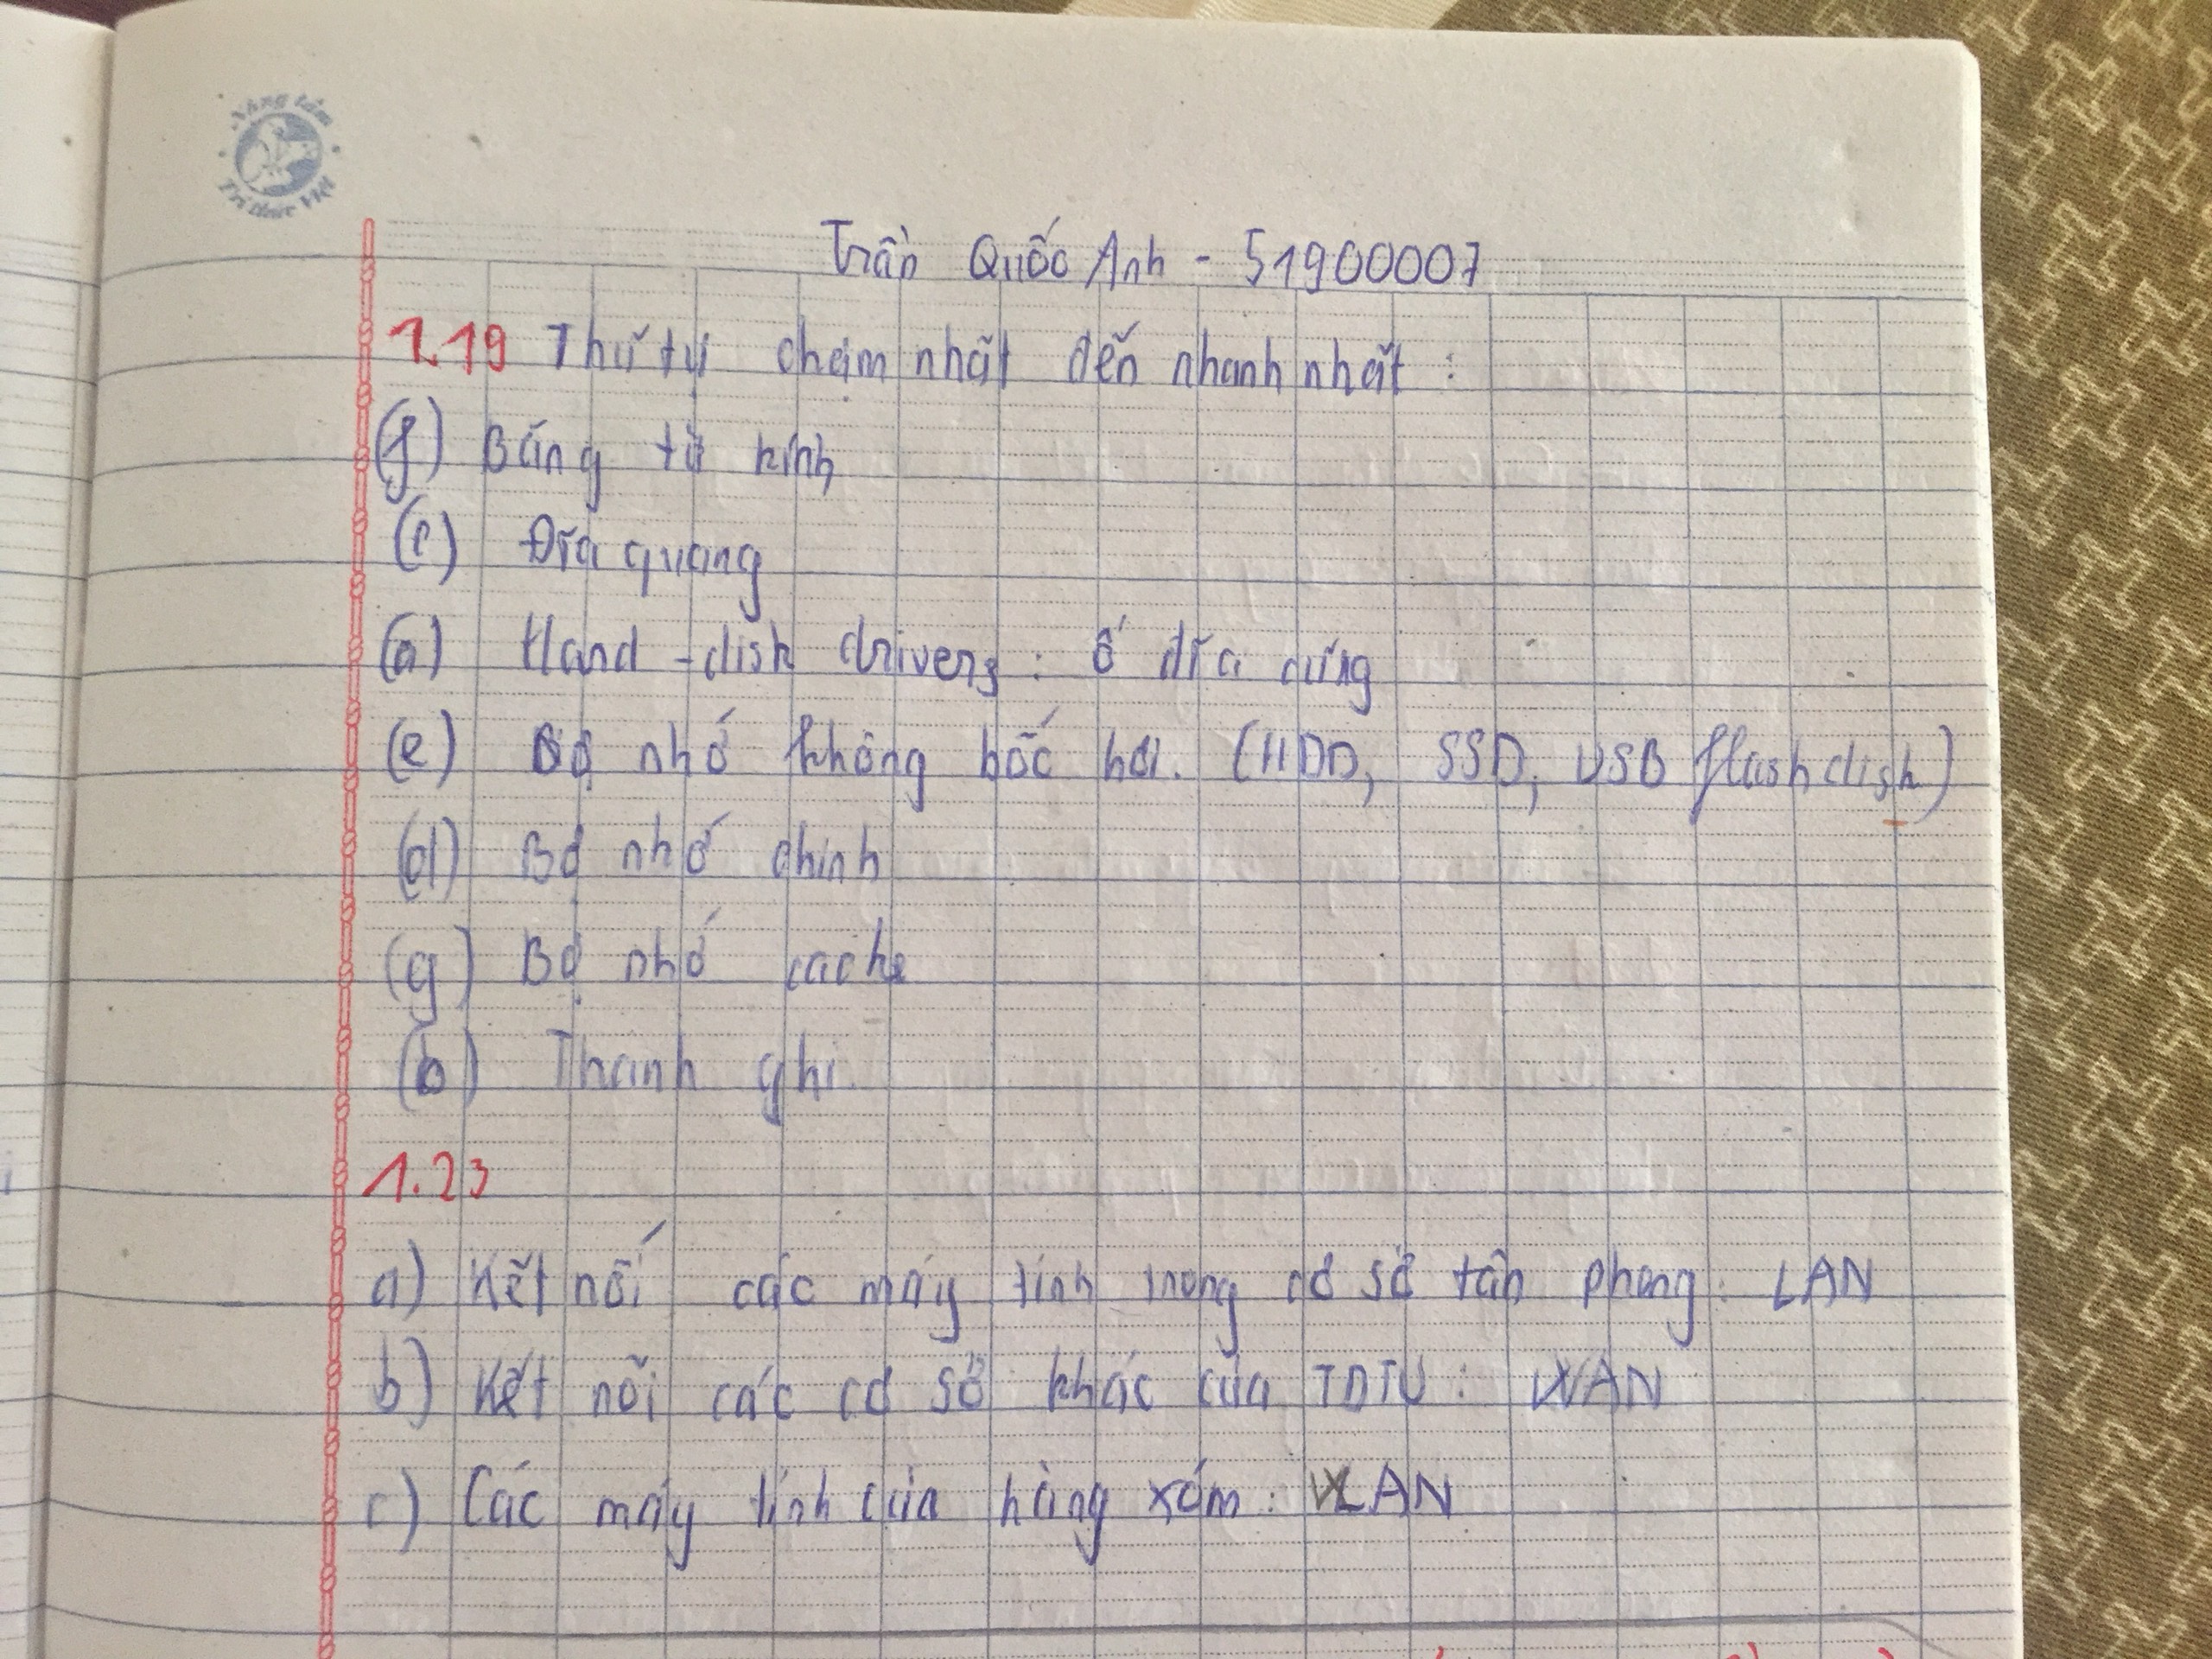 Nâng tầm
Trí thức Việt
Trần Quốc Anh - 51900007
1.19 Thứ tự chậm nhất đến nhanh nhất :
(f) Băng từ kính
(c) Đĩa quang
(a) Hard-disk drivers : ổ đĩa cứng
(e) Bộ nhớ không bốc hơi. (HDD, SSD, USB flash disk)
(d) Bộ nhớ chính
(g) Bộ nhớ cache
(b) Thanh ghi.
1.23
a) Kết nối các máy tính trong cơ sở tân phong : LAN
b) Kết nối các cơ sở khác của TDTU : WAN
c) Các máy tính của hàng xóm : LAN